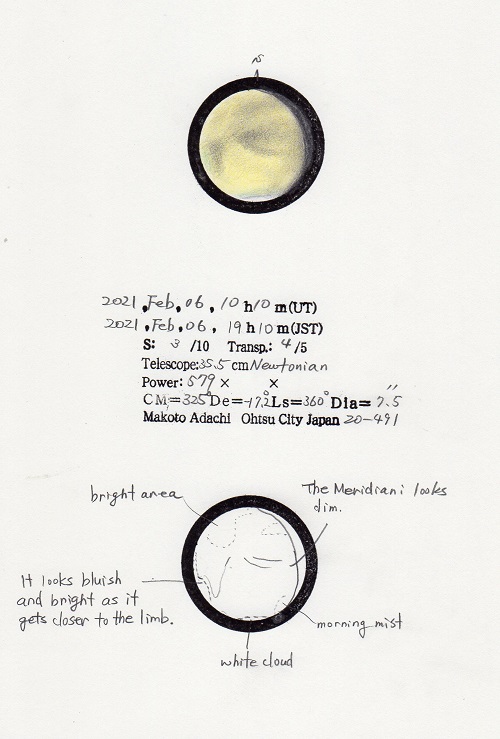 N
2021, Feb, 06, 10 h 10 m (UT)
2021, Feb, 06, 19 h 10 m (JST)
S: 3 /10 Transp.: 4 /5
Telescope: 35.5 cm Newtonian
Power: 579 × ×
CM=325° De=-17.2° Ls=360° Dia= 7.5"
Makoto Adachi Ohtsu City Japan 20-491
bright area
The Meridiani looks
dim.
It looks bluish
and bright as it
gets closer to the limb.
morning mist
white cloud